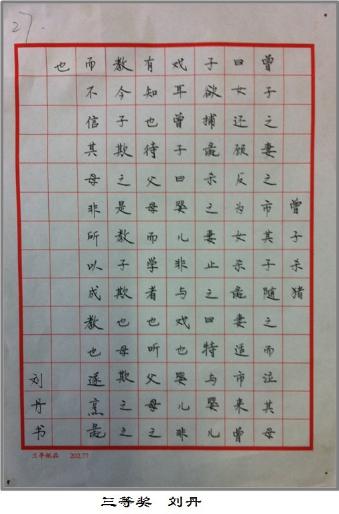 27.
曾子杀猪
曾子之妻之市其子随之而泣其母
曰女还顾反为女杀彘妻适市来曾
子欲捕彘杀之妻止之曰特与婴儿
戏耳曾子曰婴儿非与戏也婴儿非
有知也待父母而学者也听父母之
教今子欺之是教子欺也母欺之之
而不信其母非所以成教也遂烹彘
也
刘丹书
202.77
三等奖 刘丹